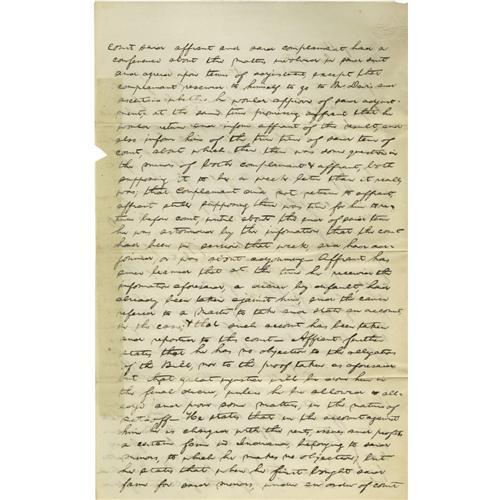 Court said affiant and said complainant had a
conference about the matters involved in said suit
and agreed upon terms of adjustment, except that
complainant reserved to himself to go to Mr. Davis and
ascertain whether he would approve of said adjust-
ment, at the same time promising affiant that he
would return and inform affiant of the result, and
also inform him of the true time of said term of
court about which there was some question in
the minds of both complainant & affiant, both
supposing it to be a week later than it really
was; that complainant did not return to affiant,
affiant still supposing there was time for him
time before court, until about the end of said term
he was astonished by the information that the court
had been in session that week and had
or was about adjourning. Affiant has
since learned that at the time he received the
information aforesaid, a decree by default had
already been taken against him, and the cause
referred to a Master to take and state an account
in the case, & that such account has been taken
and reported to the court. Affiant further
states that he has no objection to the allegations
of the Bill, nor to the proof taken as aforesaid
but that great injustice will be done him in
the final decree, unless he be allowed to all-
ege and prove some matters, in the nature of
set-off. He states that in the account against
him he is charged with the rent, issues and profits
a certain farm in belonging to said
minors, to which he makes no objection; but
he states that when he first bought said
farm for said minors, under an order of court